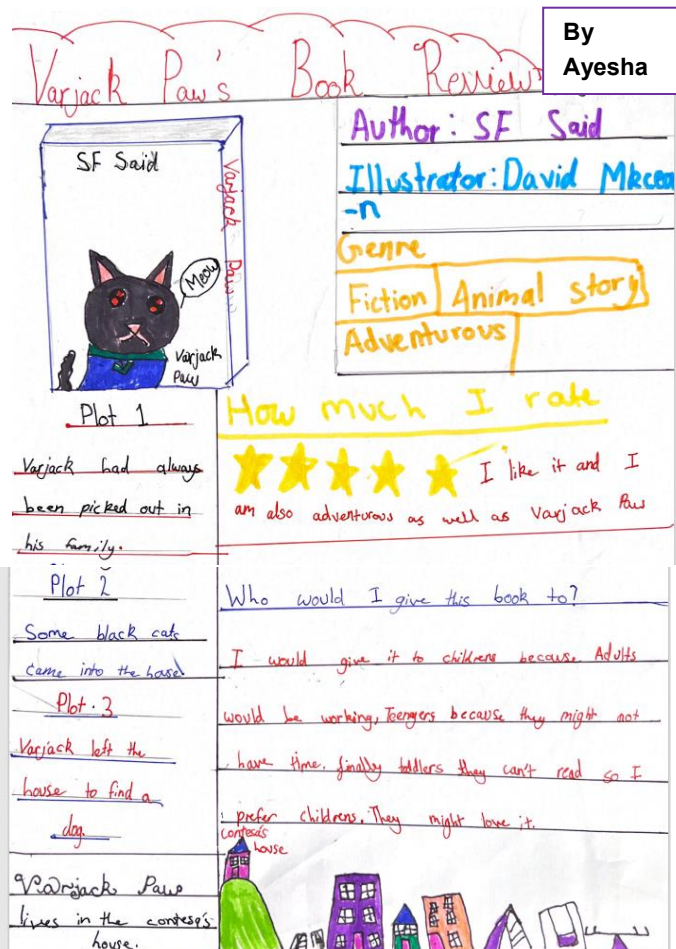 By
Ayesha
Varjack Paw's Book Review
SF Said
Varjack Paw
Meow
Varjack
Paw
Author: SF Said
Illustrator: David Mkcea
-n
Genre
Fiction Animal story
Adventurous
Plot 1
Varjack had always
been picked out in
his family.
How much I rate
I like it and I
am also adventurous as well as Varjack Paw
Plot 2
Some black cats
came into the house
Plot.3
Varjack left the
house to find a
dog.
Varjack Paw
lives in the contess's
house.
Who would I give this book to?
I would give it to childrens because Adults
would be working, Teengers because they might not
have time. finally toddlers they can't read so I
prefer childrens. They might love it.
contess's
house